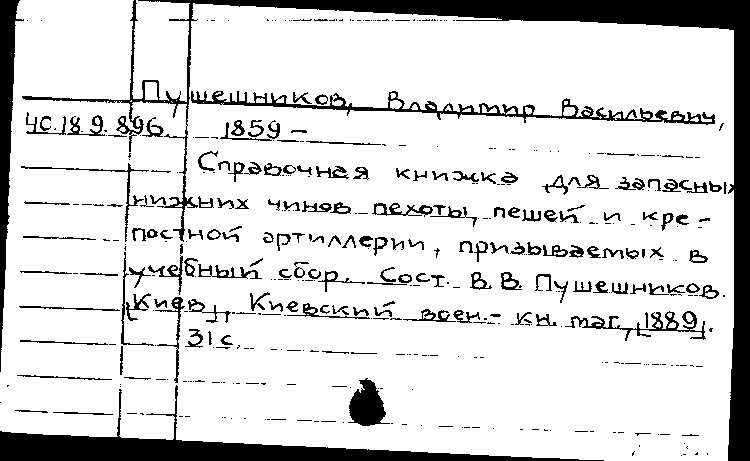 Пушешников, Владимир Васильевич,
ЧС.18.9.896. 1859 –
Справочная книжка для запасных
нижних чинов пехоты, пешей и кре-
постной артиллерии, призываемых в
учебный сбор. Сост. В.В. Пушешников.
[Киев], Киевский воен.- кн. маг., [1889].
31 с.